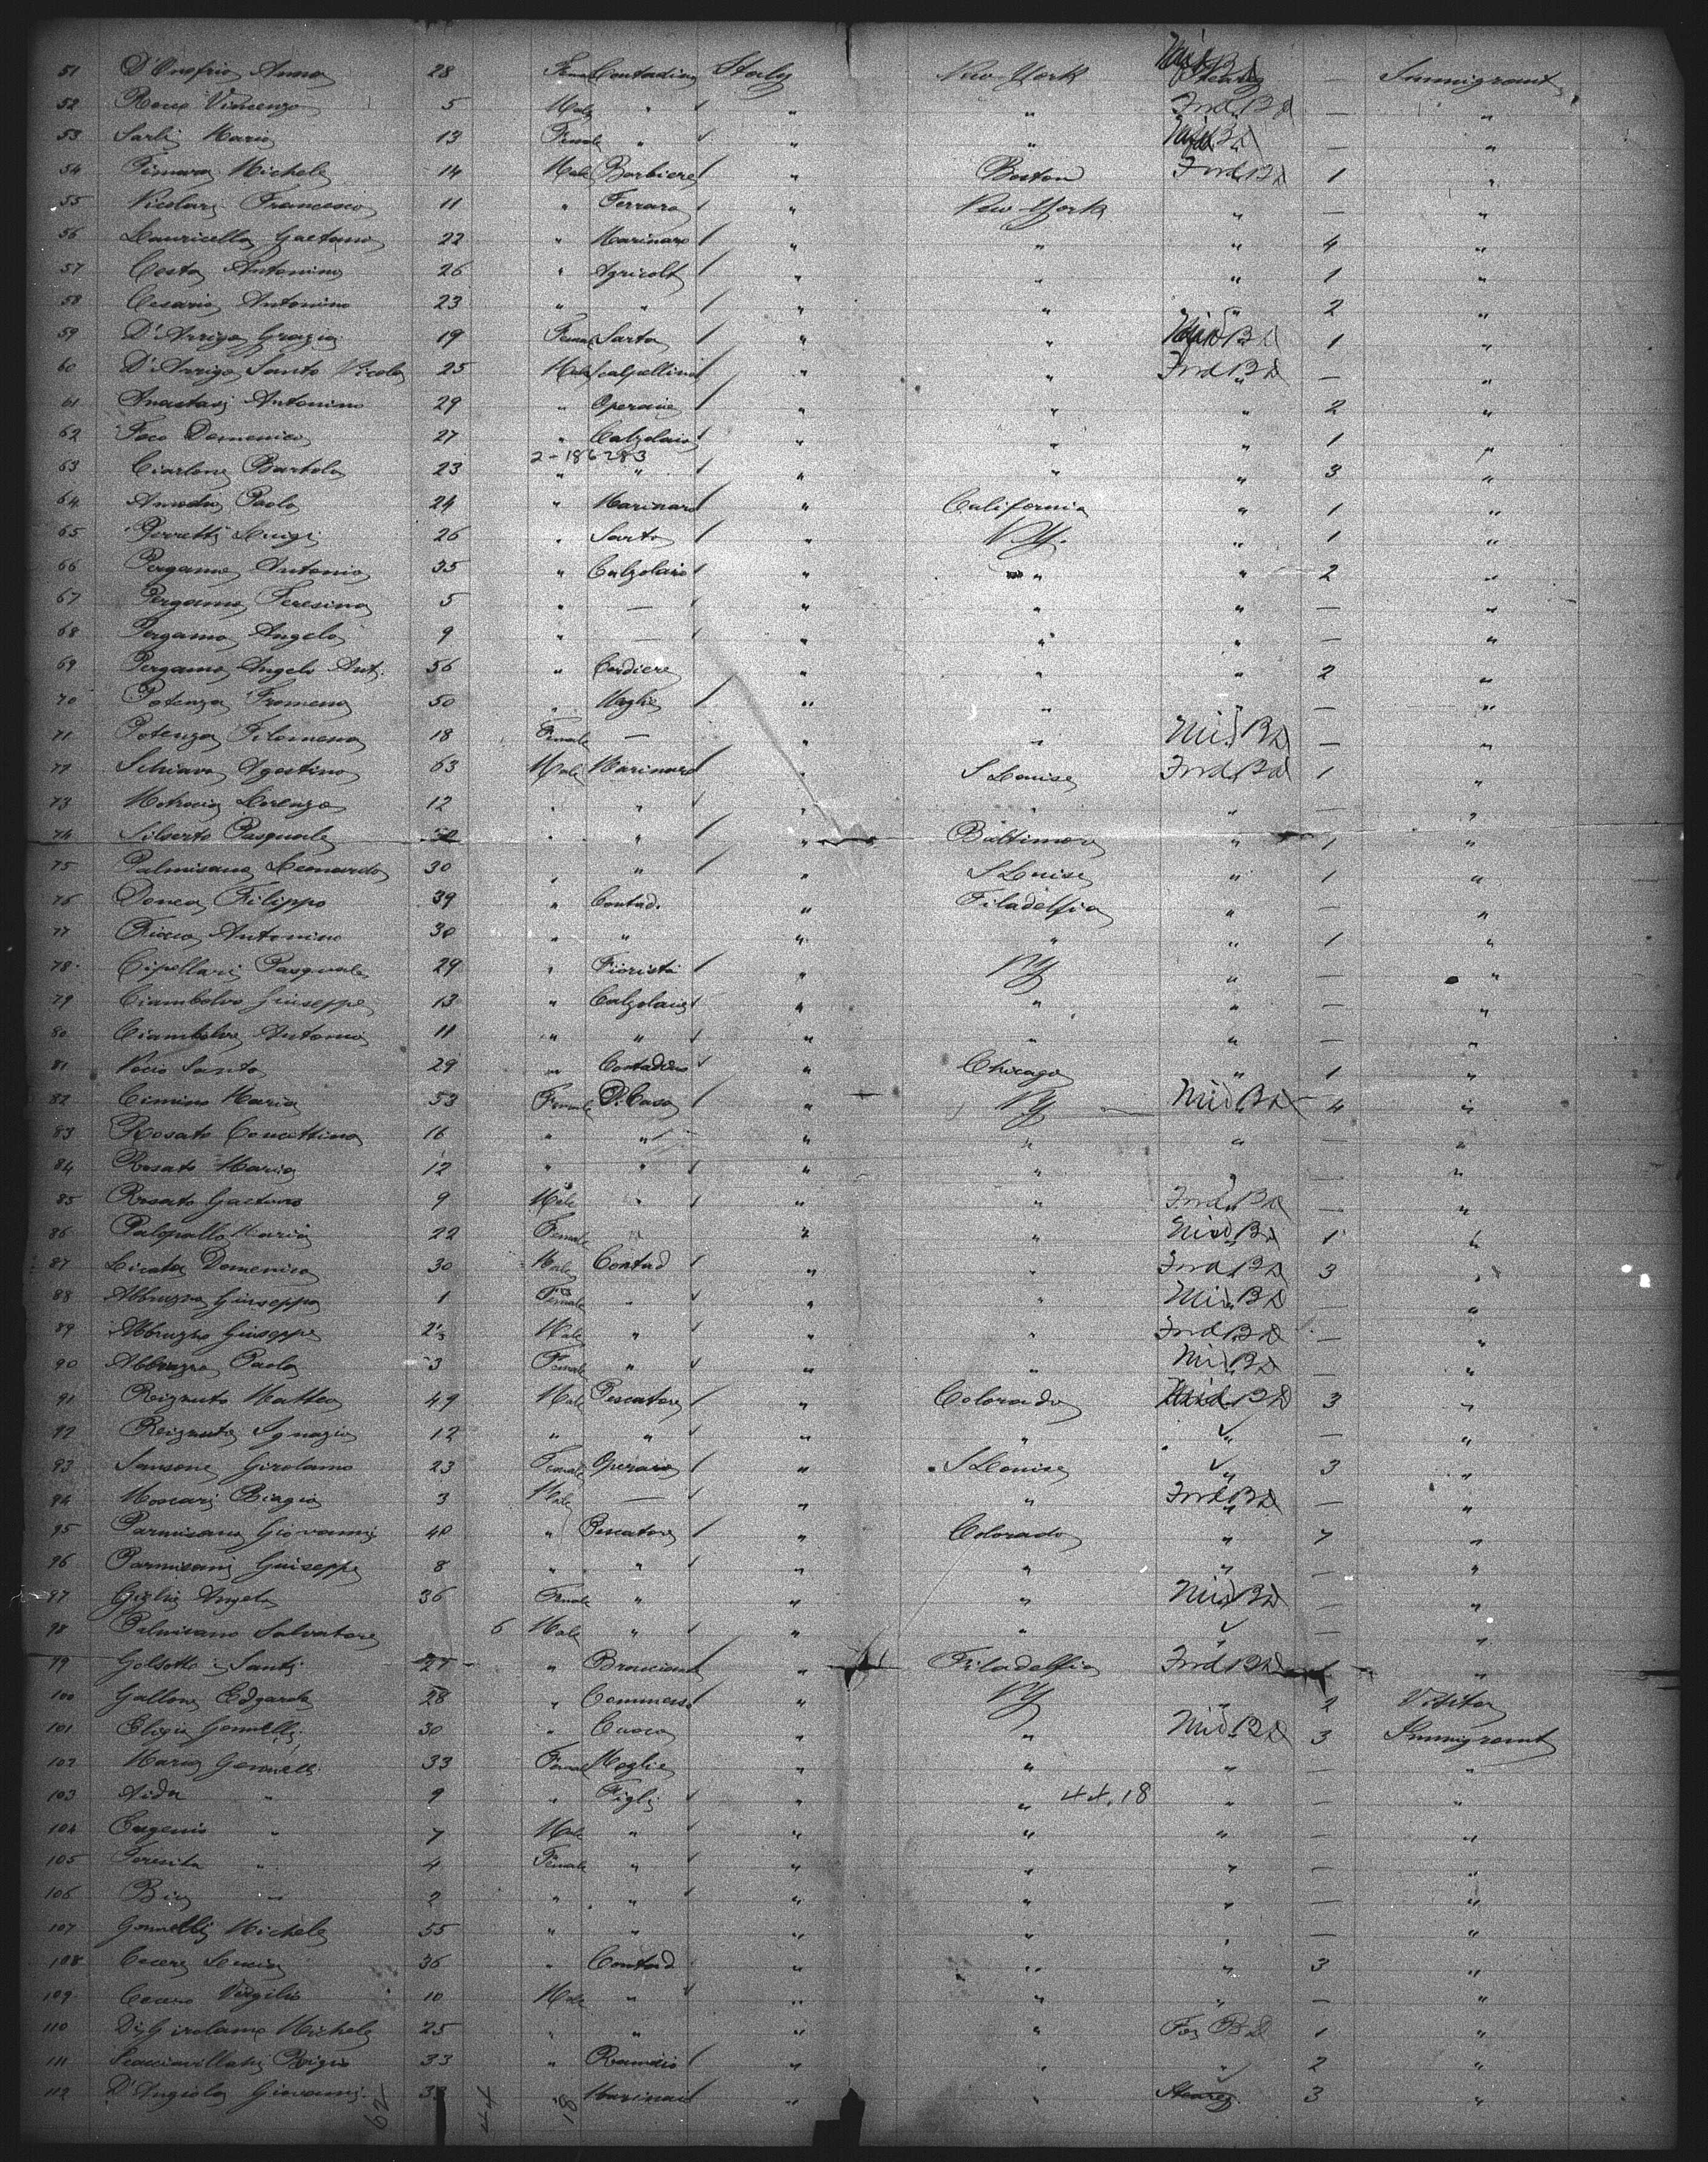 51 D'Onofrio Anna 28 Female Contadina Italy New-York Mid BD — Immigrant
52 Rocco Vincenzo 5 Male " " " Fwd BD — "
53 Sarli Maria 13 Female " " " Mid BD — "
54 Michele 14 Male Barbiere " Boston Fwd BD 1 "
55 Nicolari Francesco 11 " Ferraro " New-York " — "
56 Lauricella Gaetano 22 " Marinaro " " " 4 "
57 Costa Antonino 26 " Agricolt " " " 1 "
58 Cesario Antonino 23 " " " " " 2 "
59 D'Arrigo Grazia 19 Female Sarta " " Mid BD 1 "
60 D'Arrigo Santo Nicola 25 Male Scalpellino " " Fwd BD — "
61 Anastasi Antonino 29 " Operaio " " " 2 "
62 Foco Domenico 27 " Calzolaio " " " 1 "
2-186283
63 Ciarlone Bartolo 23 " " " " " 3 "
64 Amedio Paolo 24 " Marinaro " California " 1 "
65 Perretti Luigi 26 " Sarto " N.Y. " 1 "
66 Pergamo Antonio 35 " Calzolaio " " " 2 "
67 Pergamo Teresina 5 " — " " " — "
68 Pergamo Angelo 9 " — " " " — "
69 Pergamo Angelo Ant. 56 " Cordiere " " " 2 "
70 Potenza 50 " Moglie " " " — "
71 Potenza Filomena 18 Female — " " Mid BD — "
72 Schiavo Agostino 63 Male Marinaro " S Louise Fwd Bd 1 "
73 Lorenzo 12 " " " " " — "
74 Silberto Pasquale 50 " " " Baltimora " 1 "
75 Palmisano Leonardo 30 " " " S Louise " 1 "
76 Donca Filippo 39 " Contad. " Filadelfia " — "
77 Ricco Antonino 30 " " " " " 1 "
78 Cipellari Pasquale 29 " Fiorista " NY " — "
79 Ciambolvo Giuseppe 13 " Calzolaio " " " — "
80 Ciambolvo Antonio 11 " " " " " — "
81 Santo 29 " Contadino " Chicago " 1 "
82 Cimino Maria 53 Female D. Casa " NY Mid BD 4 "
83 Rosato Concettina 16 " " " " " — "
84 Rosato Maria 12 " " " " " — "
85 Rosato Gaetano 9 Male " " " Fwd BD — "
86 Maria 22 Female " " " Mid BD 1 "
87 Licata Domenico 30 Male Contad " " Fwd BD 3 "
88 Abbruzzo Giuseppa 1 Female " " " Mid BD — "
89 Abbruzzo Giuseppe 2 Male " " " Fwd BD — "
90 Abbruzzo Paola 3 Female " " " Mid BD — "
91 Reigruto Matteo 49 Male Pescatore " Colorado Mid BD 3 "
92 Reigruto Ignazio 12 " " " " " — "
93 Sansone Girolamo 23 Female Operaio " S Louise " 3 "
94 Moscari Biagio 3 Male — " " Fwd BD — "
95 Parmisano Giovanni 40 " Pescatore " Colorado " 7 "
96 Parmisano Guiseppe 8 " " " " " — "
97 Giglio Angela 36 Female " " " Mid BD — "
98 Palmisano Salvatore 6 Male " " " " — "
99 Santi 27 " Bracciante " Filadelfia Fwd BD 1 "
100 Gallone Edgardo 28 " Commesso " NY " 2 Visitor
101 Eligio Gonnelli 30 " Cuoco " " Mid BD 3 Immigrant
102 Maria Gonnelli 33 Female Moglie " " " — "
103 Aida " 9 " Figli " " 44.18 " — "
104 Eugenio " 7 Male " " " " — "
105 Teresita " 4 Female " " " " — "
106 Bice " 2 " " " " " — "
107 Gonnelli Michele 55 " " " " " — "
108 Cocero Lucia 36 " Contad " " " 3 "
109 Cocero Virgilio 10 Male " " " " — "
110 Di Girolamo Michele 25 " " " " For BD 1 "
111 Scacciavillani Biagio 33 " " " " 2 "
112 D'Angiola Giovanni 33 " Marinaio " " Steerag 3 "
62 44 18